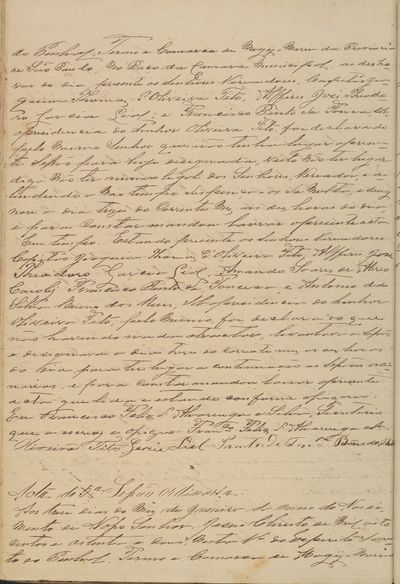 do Pinhal, Termo e Comarca de Mogy-Mirim da Provincia
de São Paulo, No Paço da Camara Municipal, as dez ho-
ras do dia presente os Senhores Vereadores, Capitão Joa-
quim Thomaz d'Oliveira Tito, Alferes José Theodo-
ro Garcia Leal, e Francisco Pinto da Fonseca sob
a presidencia do Senhor Oliveira Tito, foi declarado
pelo mesmo Senhor que não tinha lugar a presen-
te Sessão para hoje designada, visto não ter lugar
digo não ter numero legal dos Senhores Vereadores e a
não
nou o dia treze do corrente mez, as dez horas do dia,
e para constar mandou lavrar a presente acta
Em tempo. Estando presente os Senhores Vereadores
Capitão Joaquim Thomaz d'Oliveira Tito, Alferes José
Theodoro Garcia Leal, Amando Soares de
Francisco Pinto da Fonseca, e Antonio da
Silva Bueno dos Reis, sob a presidencia do Senhor
Oliveira Tito, pelo mesmo, foi declarado que
não havendo nada a tractar, levantou a Sessão
e designava o dia treze do corrente mez as dez horas
do dia para ter lugar a continuação as Sessões ordi-
narias, e para constar mandou lavrar a presente
acta que lida e estando conforme
Eu Francisco Felix d' e Silva, Secretario
que a escrevi e assigno. Franco Felix d'
Oliveira Tito, Garcia Leal Pinto da Bueno
Acta da 5ª Sessão Ordinaria
Aos dias do Mez de Janeiro do anno do Nasci-
mento de Nosso Senhor Jesus Christo de Mil, oito
centos e oitenta e dous nesta Va do Espirito San-
to do Pinhal, Termo e Comarca de Mogy-Mirim